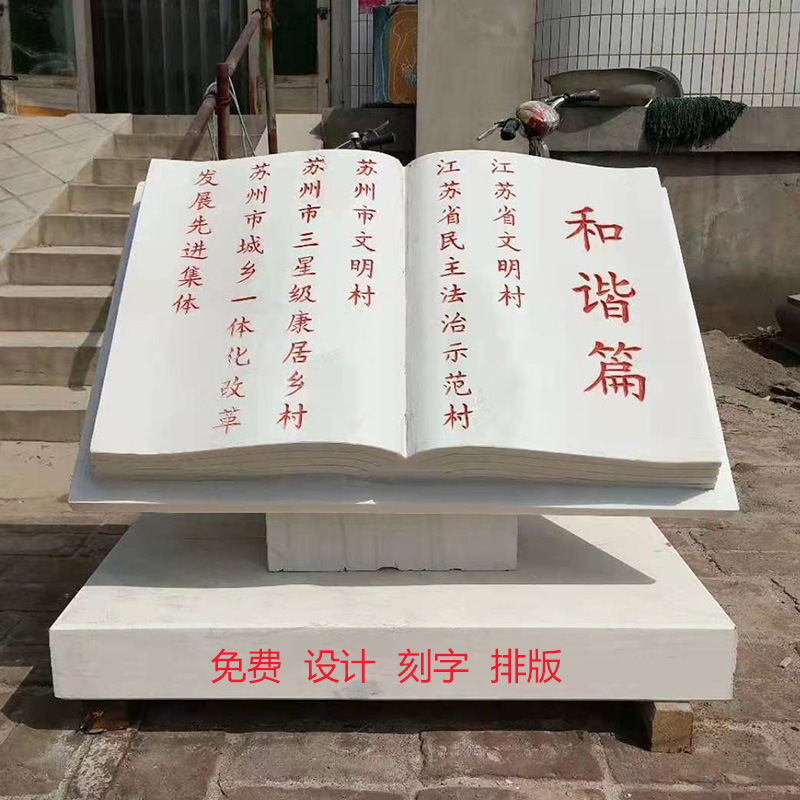 和谐篇
江苏省文明村
江苏省民主法治示范村
苏州市文明村
苏州市三星级康居乡村
苏州市城乡一体化改革
发展先进集体
免费 设计 刻字 排版